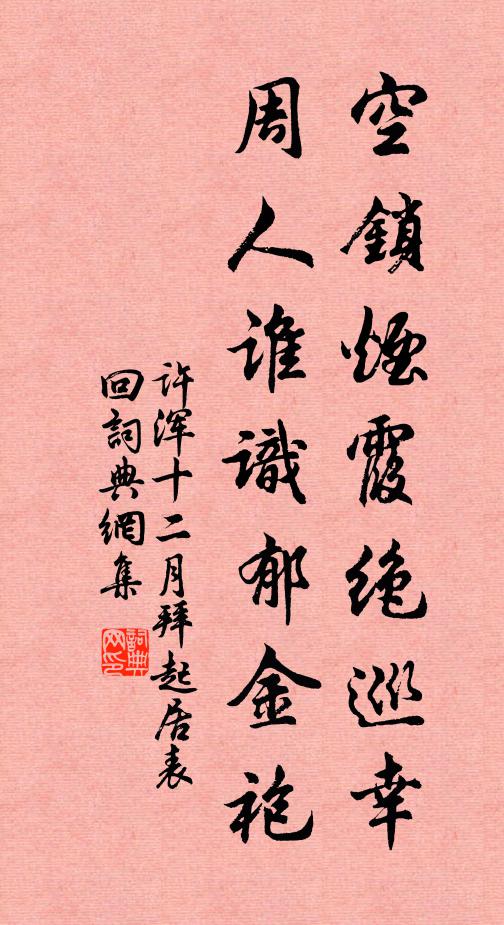 空鎖煙霞絶巡幸
周人誰識郁金袍
许浑十二月拜起居表
回詞典網集
詞典
网印